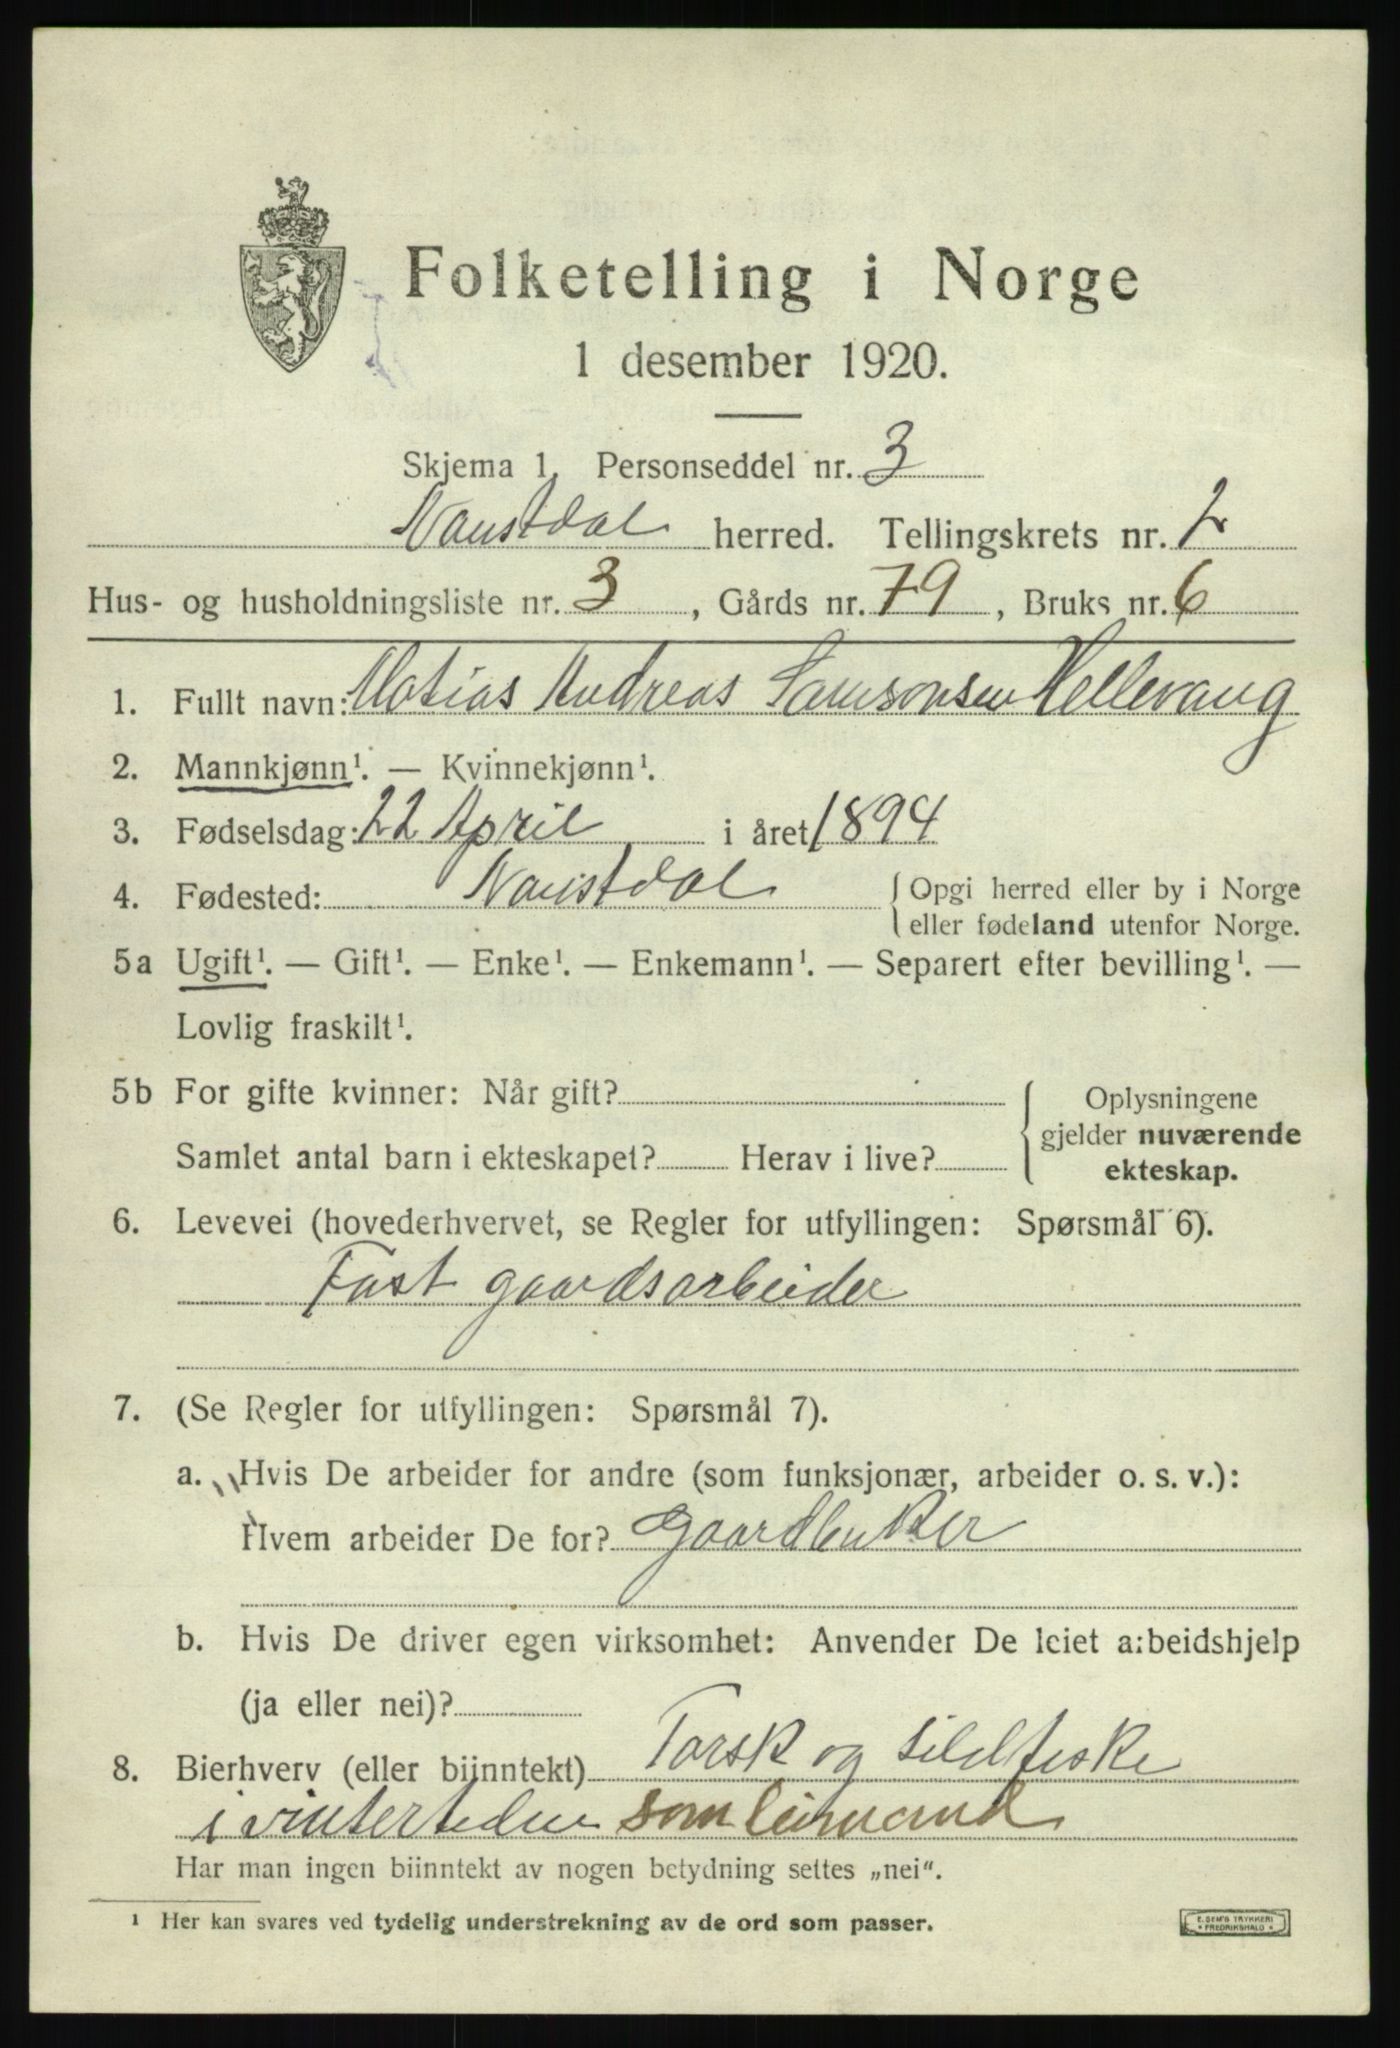 Folketelling i Norge
1 desember 1920.
Skjema 1. Personseddel nr. 3
Naustdal herred. Tellingskrets nr. 2
Hus- og husholdningsliste nr. 3, Gårds nr. 79, Bruks nr. 6
1. Fullt navn: Matias Andreas Samsonsen Hellevang
2. Mannkjønn¹. — Kvinnekjønn¹.
3. Fødselsdag: 22 April i året 1894
4. Fødested: Naustdal { Opgi herred eller by i Norge
eller fødeland utenfor Norge.
5a Ugift¹. — Gift¹. — Enke¹. — Enkemann¹. — Separert efter bevilling¹. —
Lovlig fraskilt¹.
5b For gifte kvinner: Når gift?
Samlet antal barn i ekteskapet? Herav i live?
{ Oplysningene
gjelder nuværende
ekteskap.
6. Levevei (hovederhvervet, se Regler for utfyllingen: Spørsmål 6).
Fast gaardsarbeider
7. (Se Regler for utfyllingen: Spørsmål 7).
a. Hvis De arbeider for andre (som funksjonær, arbeider o. s. v.):
Hvem arbeider De for? gaardbruker
b. Hvis De driver egen virksomhet: Anvender De leiet arbeidshjelp
(ja eller nei)?
8. Bierhverv (eller biinntekt) Torsk og sildfiske
i vintertiden som leiemand
Har man ingen biinntekt av nogen betydning settes „nei".
¹ Her kan svares ved tydelig understrekning av de ord som passer.
E. SEM'S TRYKKERI
* FREDRIKSHALD *